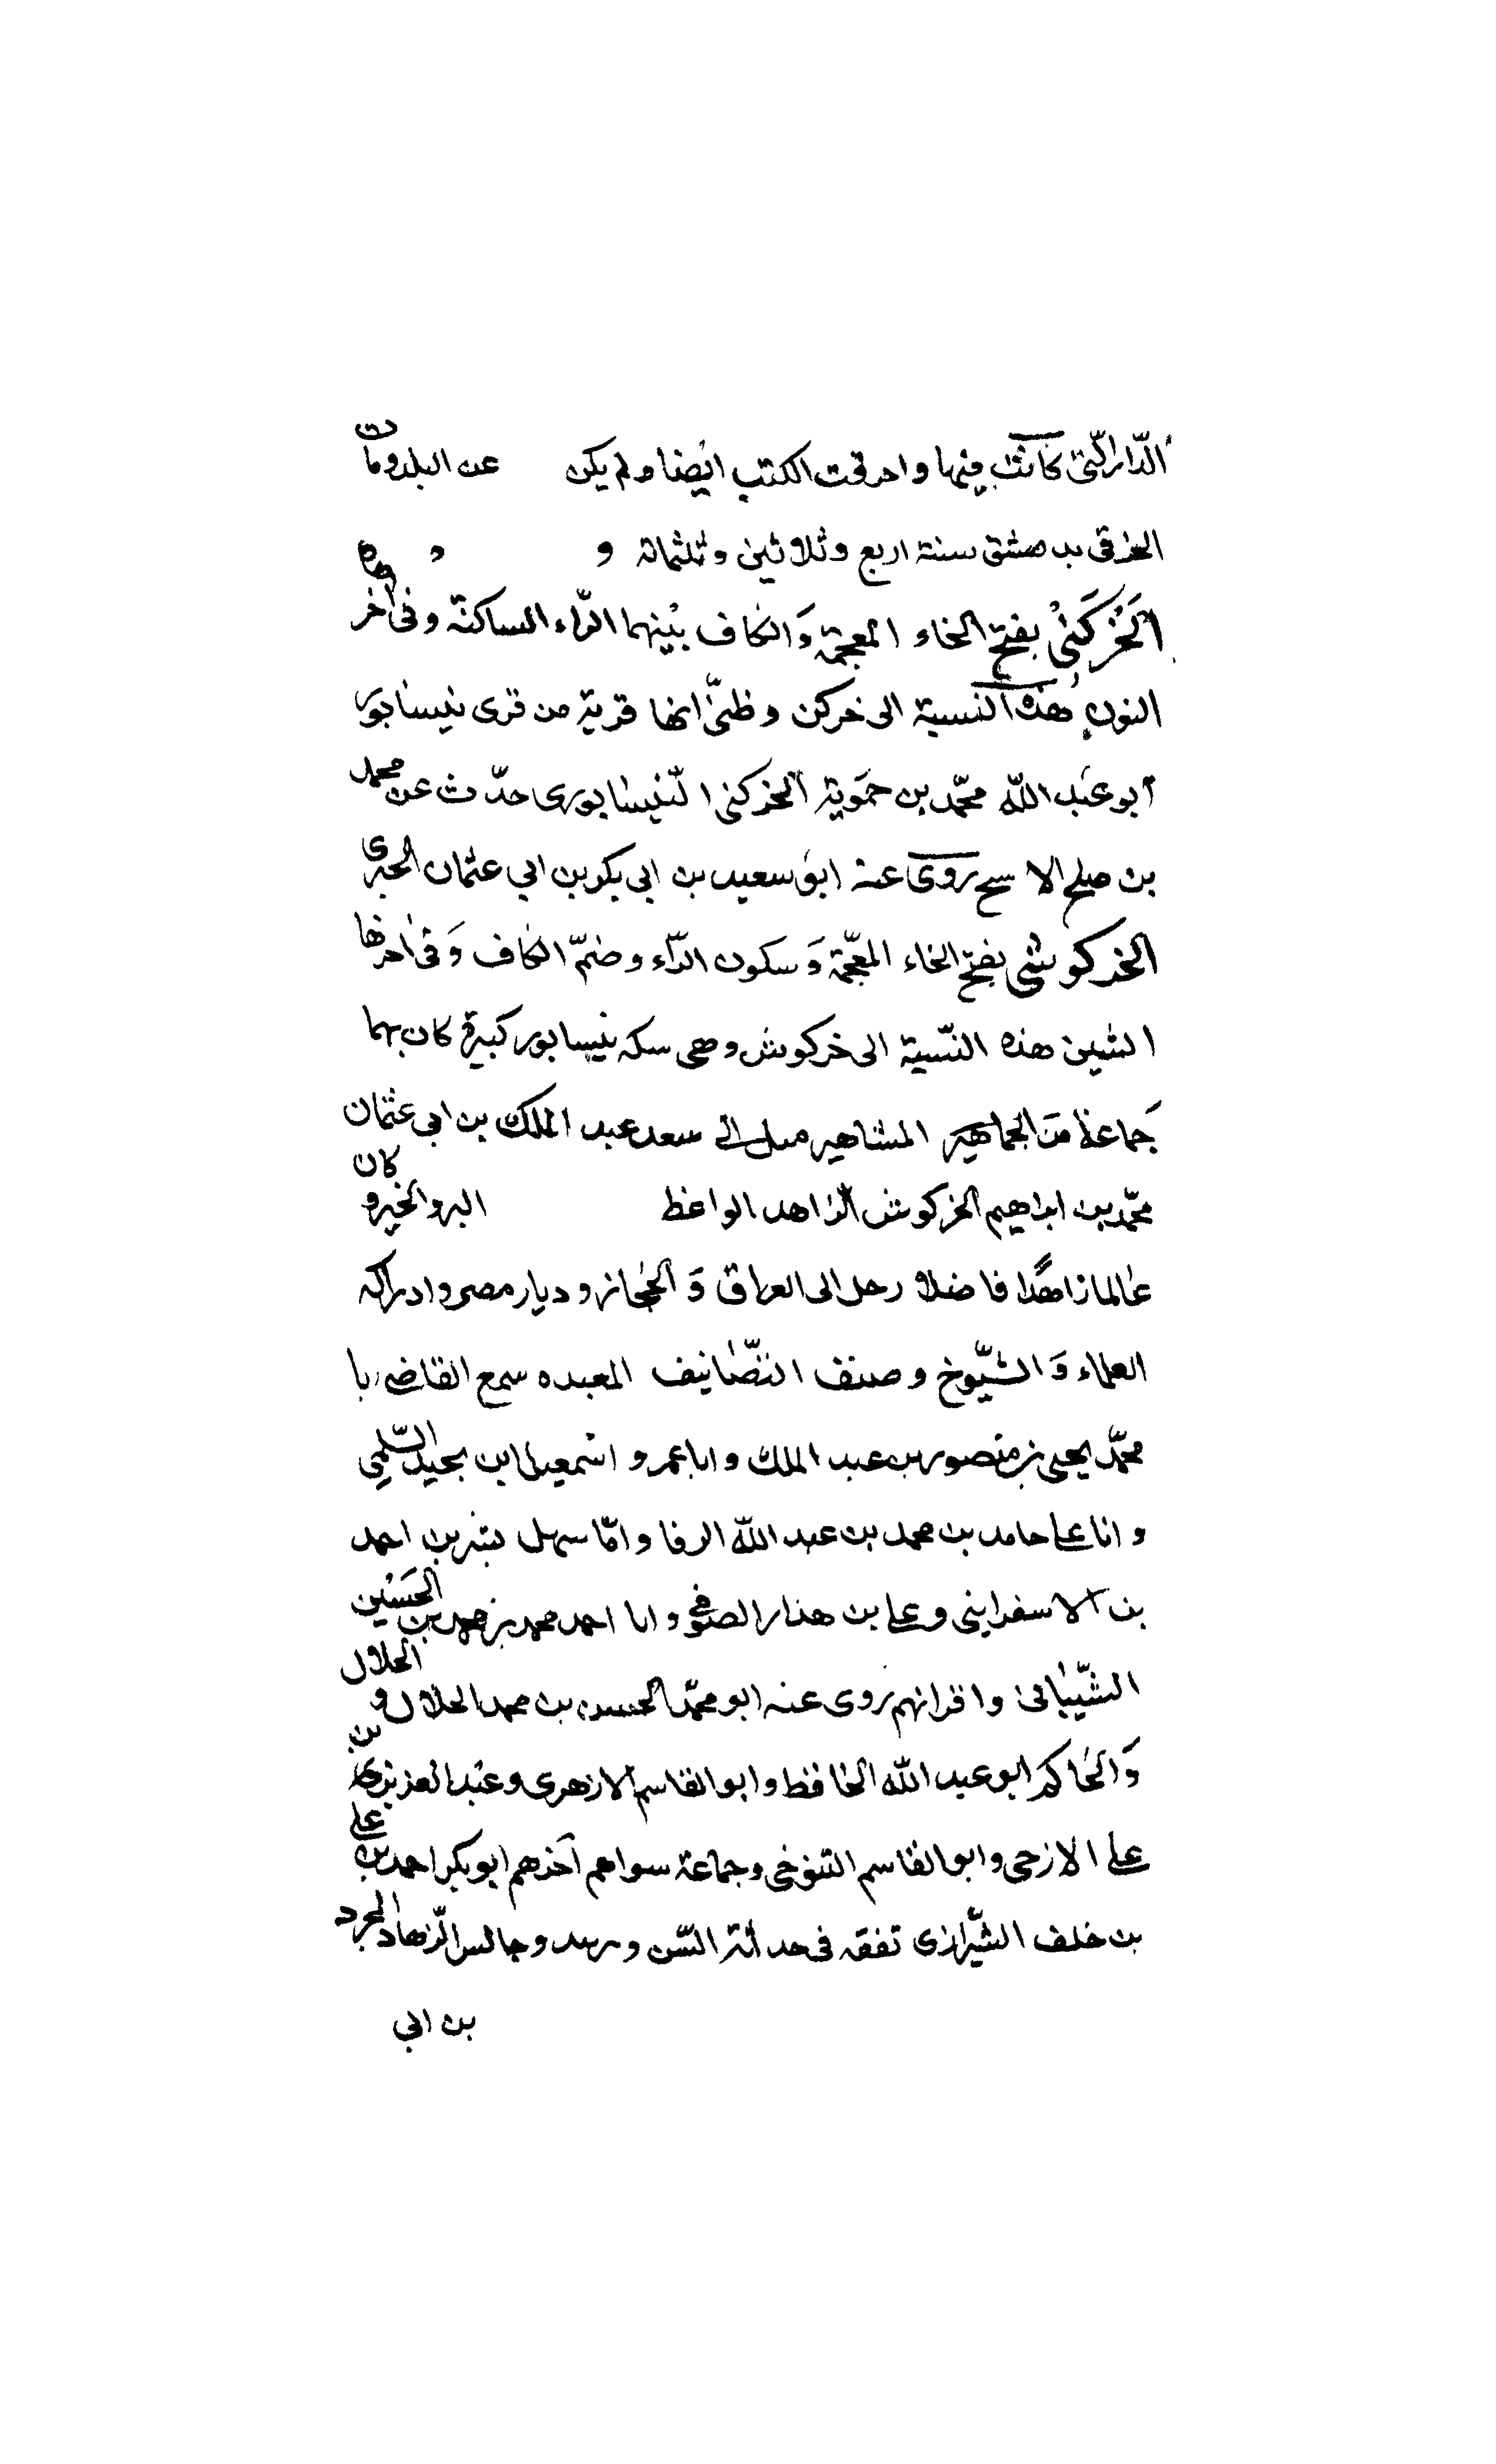 الدّار الّتى كانت فيها واحرقت الكتب ايضا ولم يكن عن البلد ومات
الخرقى بدمشق سنة اربع وثلاثين وثلثمائة و
الخَرْكَنىْ بفتح الخاء المعجمة وَالكاف بينهما الرّاء الساكنة وفى اخرها
النون هذه النسبة الى خركن وظنّى انها قرية من قرى نيسابور
ابو عبد اللّه محمّد بن حمَوية الخركنى النّيسابورى حدّث عن محمد
بن صلح الاسح روى عنه ابو سعيد بن ابى بكر بن ابي عثمان الحيرى
الخركوشى بفتح الخاء المعجّمة وَسكون الرّاء وضمّ الكاف وَفى اخرها
الشين هذه النّسبة الى خركوش وهى سكه نيسابور كبيرة كان بها
جَماعة من الجماهير المشاهير مىل الى سعد عبد الملك بن ابي عثمان
محّمد بن ابراهيم الخركوشى الزاهد الواعظ البر والخير وكان
عالما زاهدًا فاضلا رحل الى العراق وَالحجاز وديار مصر وادرك
العلماء وَالشيّوخ وصنف التصّانيف المعىده سمع القاضى ابا
محمّد يحيى بن منصور بن عبد الملك وابا عمرو اسمعيل بن بجيد السّلمي
وابا على حامد بن محمد بن عبد اللّه الرفا وابا سهل بشر بن احمد
بن الاسفرايني وعلى بن هندار الصوفى وابا احمد محمد بن محمد بن الحسَين
الشّيباني واقرانهم روى عنه ابو محمّد الحسن بن محمد الخلال و الخلال
وَالحاكم ابو عبد اللّه الحافظ وابو القاسم الازهرى وعبد العزيز بن
على الازجى وابو القاسم التنوخى وجماعة سواهم آخرهم ابو بكر احمد بن على
بن خلف الشّيرازى تفقه فى حداثة السّن وىرهد وجالس الزّهاد المجرد
بن ابي